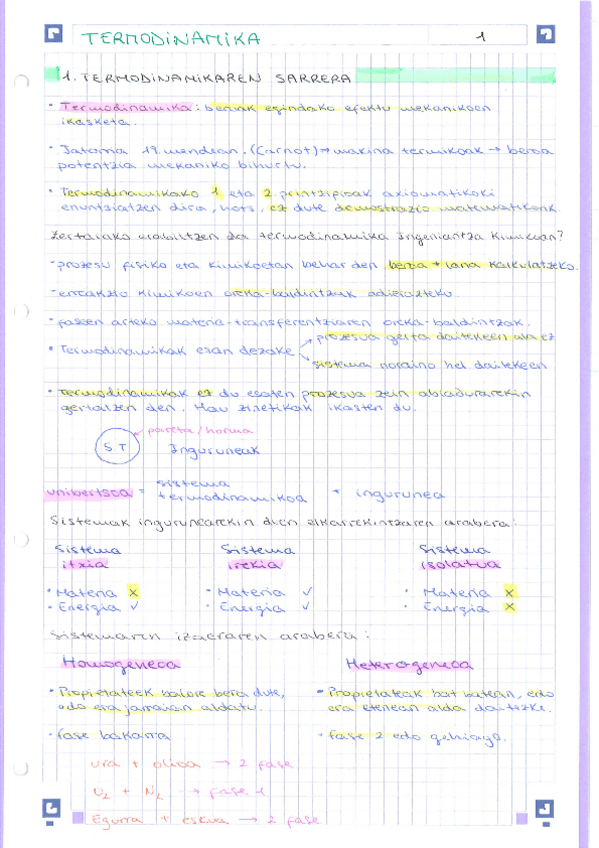 TERMODINAMIKA 1
1. TERMODINAMIKAREN SARRERA
• Termodinamika: beroak egindako efektu mekanikoen
ikasketa.
• Jatorria 19. mendean. (Carnot) → makina termikoak → beroa
potentzia mekaniko bihurtu.
• Termodinamikako 1 eta 2. printzipioak axiomatikoki
enuntziatzen dira, hots, ez dute demostrazio matematikorik.
Zertarako erabiltzen da termodinamika Ingeniaritza Kimikoan?
- prozesu fisiko eta kimikoetan behar den beroa + lana kalkulatzeko.
- erreakzio kimikoen oreka-baldintzak adierazteko.
- faseen arteko materia-transferentziaren oreka-baldintzak.
prozesua gerta daitekeen ala ez
• Termodinamikak esan dezake
sistema noraino hel daitekeen
• Termodinamikak ez du esaten prozesua zein abiadurarekin
gertatzen den. Hau zinetikak ikasten du.
pareta / horma
S.T Inguruneak
unibertsoa = sistema termodinamikoa + ingurunea
Sistemak ingurunearekin dien elkarrekintzaren arabera:
Sistema Sistema Sistema
itxia irekia isolatua
• Materia x • Materia ✓ • Materia x
• Energia ✓ • Energia ✓ • Energia x
Sistemaren izaeraren arabera:
Homogeneoa Heterogeneoa
• Propietateek balore bera dute, • Propietateak bat batean, edo
edo era jarraian aldatu. era etenean alda daitezke.
• fase bakarra • fase 2 edo gehiago.
ura + olioa → 2 fase
O2 + N2 → fase 1
Egurra + eskua → 2 fase